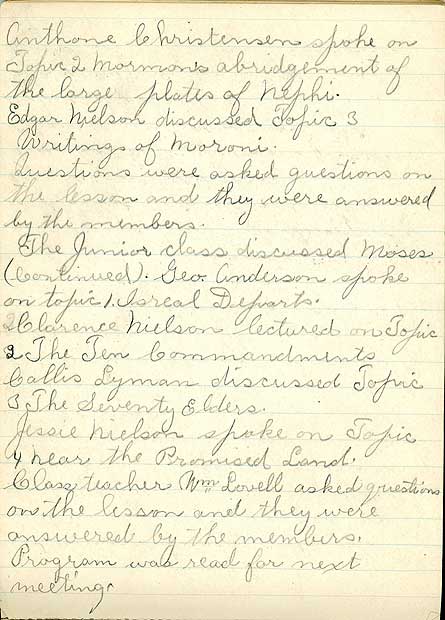 Anthone Christensen spoke on
Topic 2 Mormons abridgement of
the large plates of Nephi.
Edgar Nielson discussed Topic 3
Writings of Moroni.
Questions were asked questions on
the lesson and they were answered
by the members.
The Junior class discussed Moses
(Continued). Geo. Anderson spoke
on topic 1. Isreal Departs.
2 Clarence Nielson lectured on Topic
2 The Ten Commandments
Callis Lyman discussed Topic
3 The Seventy Elders.
Jessie Nielson spoke on Topic
4 near the Promised Land.
Class teacher Wm Lovell asked questions
on the lesson and they were
answered by the members.
Program was read for next
meeting.